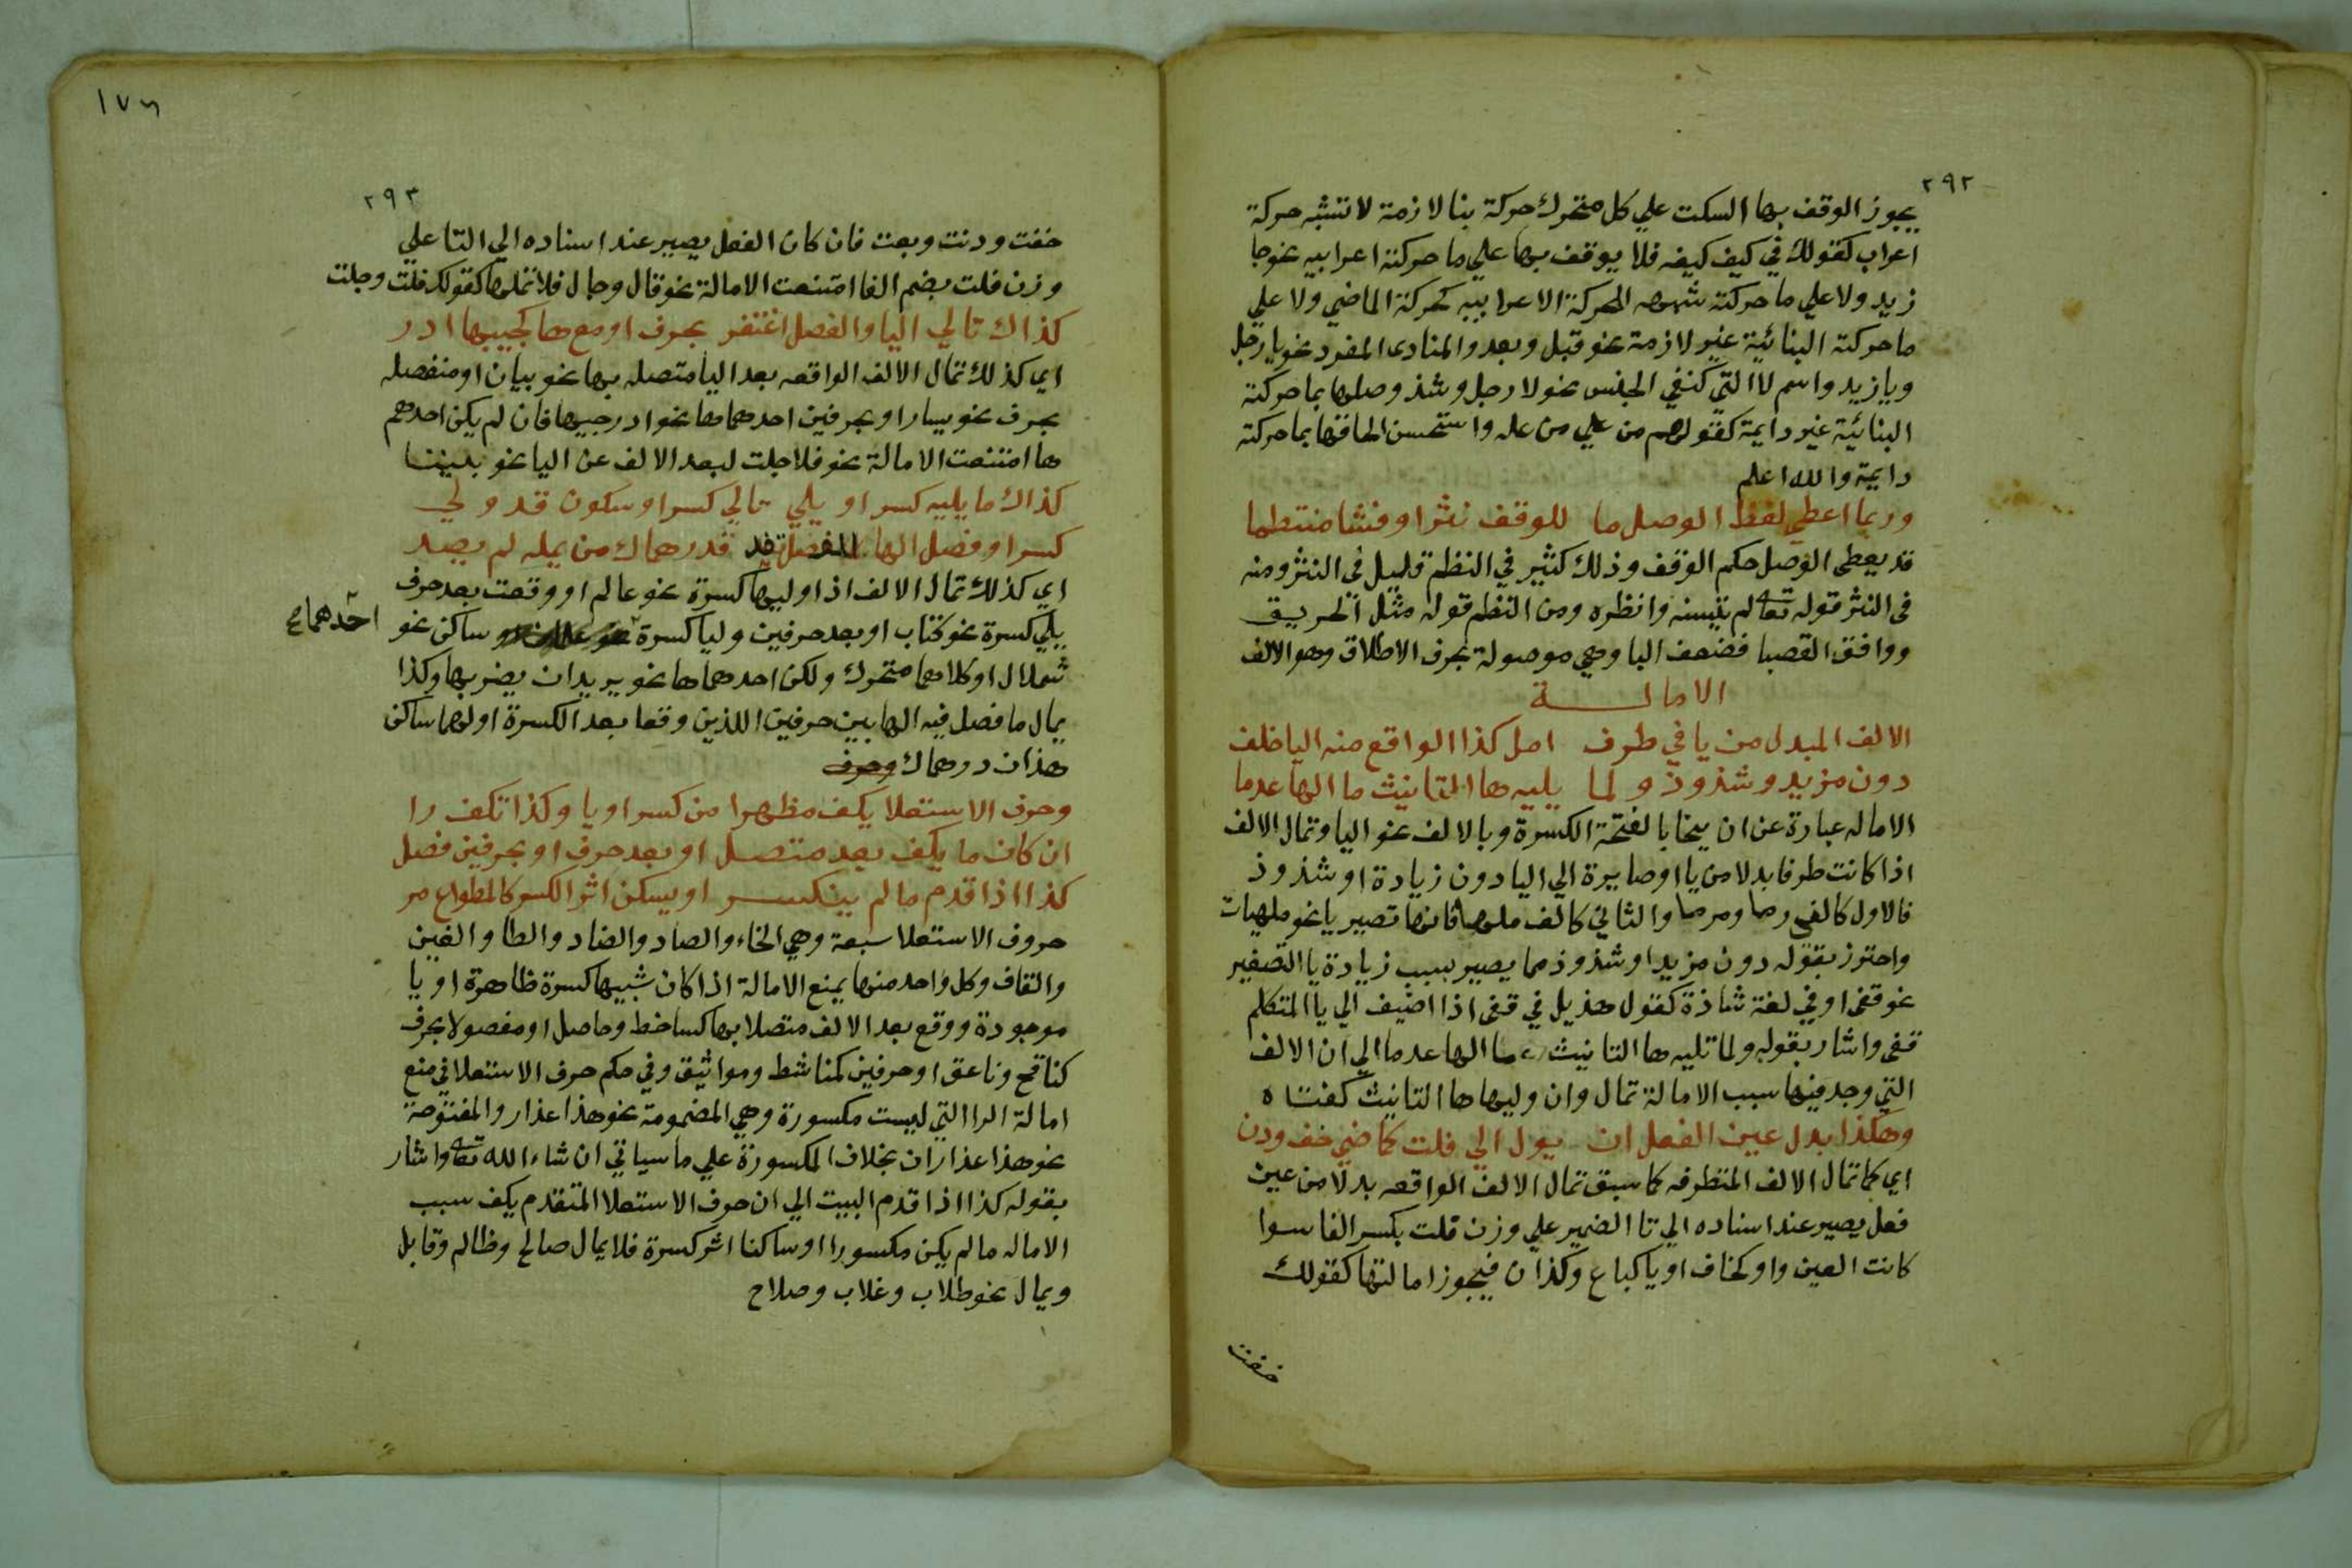 ٢٩٢
يجوز الوقف بها السكت علي كل متحرك حركة بنا لازمة لا تشبه حركة
اعراب كقولك في كيف كيفه فلا يوقف بها علي ما حركته اعرابيه نحو جا
زيد ولا علي ما حركته الحركة الاعرابيه كحركة الماضي ولا علي
ما حركته البنائية غير لازمة نحو قبل وبعد والمنادى المفرد نحو يا رجل
ويا زيد واسم لا التي كنفي الجنس نحو لا رجل وشذ وصلها بما حركته
البنائية غير دايمة كقولهم من علي من عله واستحسن الحاقها بما حركته
دايمة والله اعلم
وربما اعطي لفظ الوصل ما للوقف نثرا وفشا منتظما
قد يعطى الوصل حكم الوقف وذلك كثير في النظم قليل في النثر ومنه
في النثر قوله تعا لم يتسنه وانظره ومن النظم قوله مثل الحريق
ووافق القصبا فضعف البا وهي موصولة بحرف الاطلاق وهو الالف
الامالة
الالف المبدل من يا في طرف امل كذا الواقع منه اليا خلف
دون مزيد وشذوذ ولما يليه ها التانيث ما الها عدما
الاماله عبارة عن ان ينحا بالفتحة الكسرة وبالالف نحو اليا وتمال الالف
اذا كانت طرفا بدلا من يا او صايرة الي اليا دون زيادة او شذوذ
فالاول كالف رمى ومرمى والثاني كالف ملهى فانها تصير يا نحو ملهيات
واحترز بقوله دون مزيد او شذوذ مما يصير بسبب زيادة يا التصغير
نحو قفي او في لغة شاذة كقول هذيل في قفى اذا اضيف الي يا المتكلم
قفي واشار بقوله ولما تليه ها التانيث ما الها عدما الي ان الالف
التي وجد فيها سبب الامالة تمال وان وليها ها التانيث كفتاه
وهكذا بدل عين الفعل ان يول الي فلت كماضي خف ودن
اي كما تمال الالف المتطرفه كما سبق تمال الالف الواقعه بدلا من عين
فعل يصير عند اسناده الي تا الضمير علي وزن فلت بكسر الفا سوا
كانت العين واو كخاف او يا كباع وكذان فيجوز امالتها كقولك
خفت
١٧٦
٢٩٣
خفت ودنت وبعت فان كان الفعل يصير عند اسناده الي التا علي
وزن فلت بضم الفا امتنعت الامالة نحو قال وجال فلا تملها كقولك قلت وجلت
كذاك تالي اليا والفصل اغتفر بحرف او مع ها كجيبها ادر
اي كذلك تمال الالف الواقعه بعد اليا متصله بها نحو بيان او منفصله
بحرف نحو يسار او بحرفين احدهما ها نحو ادر جيبها فان لم يكن احدهم
ها امتنعت الامالة نحو فلا جلت لبعد الالف عن اليا نحو بيننا
كذاك ما يليه كسر او يلي تالي كسر او سكون قد ولي
كسرا وفصل الها قدرهماك من يمله لم يصد
اي كذلك تمال الالف اذا وليها كسرة نحو عالم او وقعت بعد حرف
يلي كسرة نحو كتاب او بعد حرفين وليا كسرة ساكن نحو
احدهما صح
شملال او كلاهما متحرك ولكن احدهما ها نحو يريد ان يضربها وكذا
يمال ما فصل فيه الها بين حرفين اللذين وقعا بعد الكسرة اولهما ساكن
هذان درهماك وحرف
وحرف الاستعلا يكف مظهرا من كسر او يا وكذا تكف را
ان كان ما يكف بعد متصل او بعد حرف او بحرفين فصل
كذا اذا قدم ما لم ينكسر او يسكن اثر الكسر كالمطواع مر
حروف الاستعلا سبعة وهي الخاء والصاد والضاد والطا والغين
والقاف وكل واحد منها يمنع الامالة اذا كان شبيها كسرة ظاهرة او يا
موجودة ووقع بعد الالف متصلا بها كساخط وحاصل او مفصولا بحرف
كنافح وناعق او حرفين كمناشط ومواثيق وفي حكم حرف الاستعلا في منع
امالة الرا التي ليست مكسورة وهي المضمومة نحو هذا عذار والمفتوحة
نحو هذا عذاران بخلاف المكسورة علي ما سياتي ان شاء الله تعا واشار
بقوله كذا اذا قدم البيت الي ان حرف الاستعلا المتقدم يكف سبب
الاماله ما لم يكن مكسورا او ساكنا اثر كسرة فلا يمال صالح وظالم وقابل
ويمال نحو طلاب وغلاب وصلاح